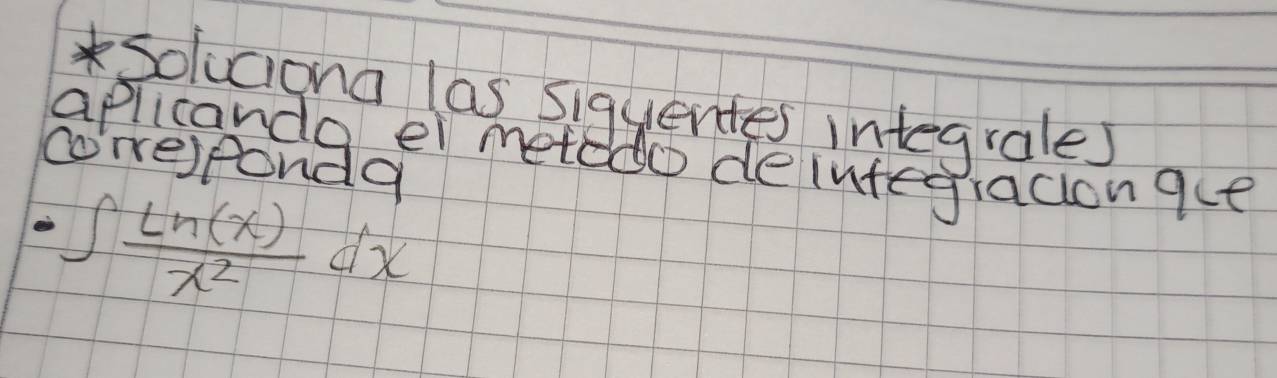 * Soluciona las siguientes integrales
aplicando el metodo de integracion que
corresponda
• ∫ Ln(x)/x² dx